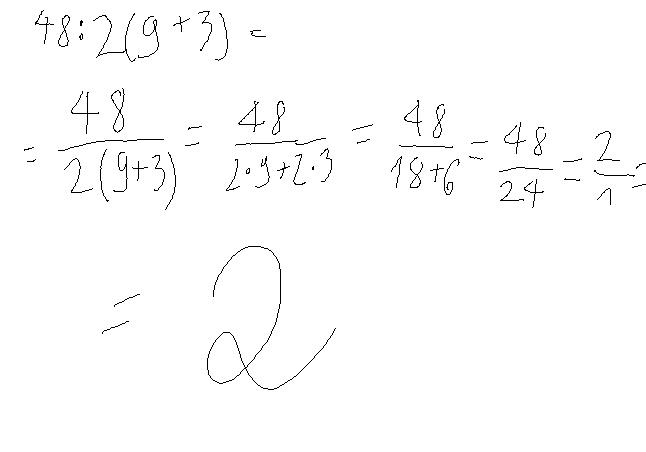 48:2(9+3) =
= 48/2(9+3) = 48/2·9+2·3 = 48/18+6 = 48/24 = 2/1 =
= 2